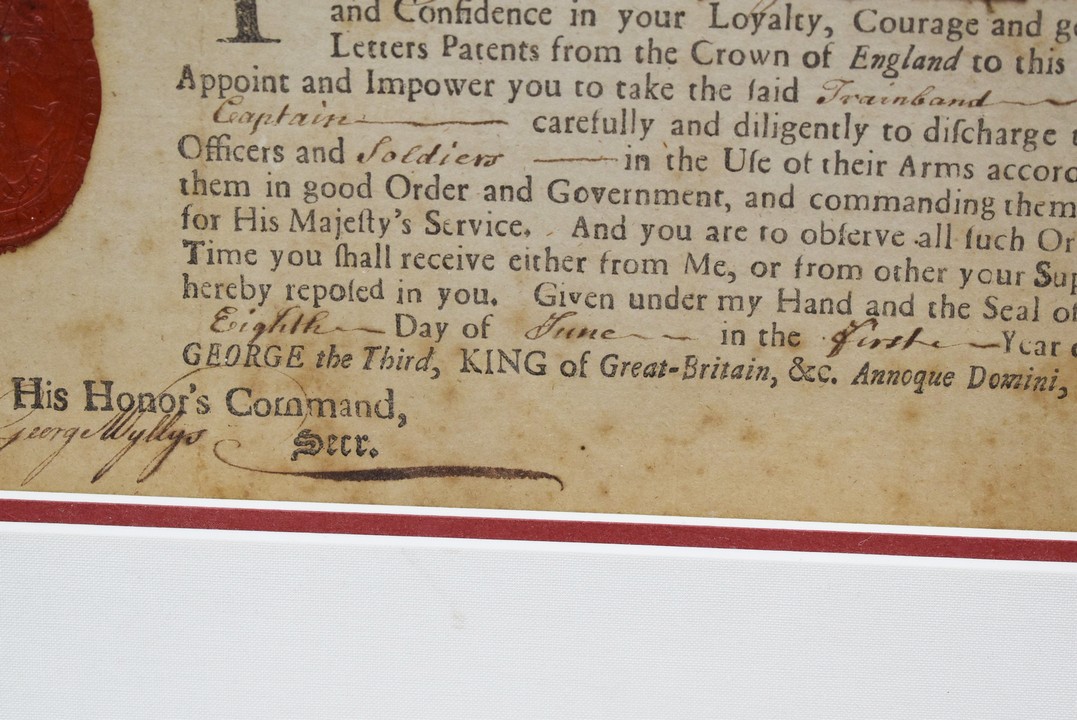 and Confidence in your Loyalty, Courage and
Letters Patents from the Crown of England to this
Appoint and Impower you to take the ſaid Trainband
Captain carefully and diligently to diſcharge
Officers and Soldiers in the Uſe of their Arms accord
them in good Order and Government, and commanding them
for His Majeſty's Service. And you are to obſerve all ſuch Or
Time you ſhall receive either from Me, or from other your Sup
hereby repoſed in you. Given under my Hand and the Seal of
Eighth Day of June in the first Year
GEORGE the Third, KING of Great-Britain, &c. Annoque Domini,
His Honor's Command,
George Wyllys Secr.